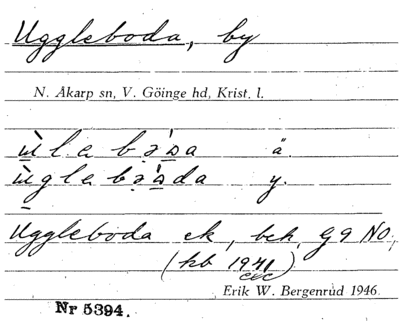 Uggleboda, by
N. Åkarp sn, V. Göinge hd, Krist. l.
ùle bə̀ɷa ä.
ùgle bə̀ɷda y.
Uggleboda ek, bck, G9 NO,
(kb 1941)
Erik W. Bergenrud 1946
Nr 5394.